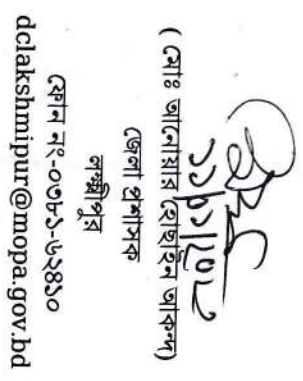 ১১/০১/২০১৮
( মোঃ আনোয়ার হোছাইন আকন্দ)
জেলা প্রশাসক
লক্ষ্মীপুর
ফোন নং-০৩৮১-৬২৪১০
dclakshmipur@mopa.gov.bd